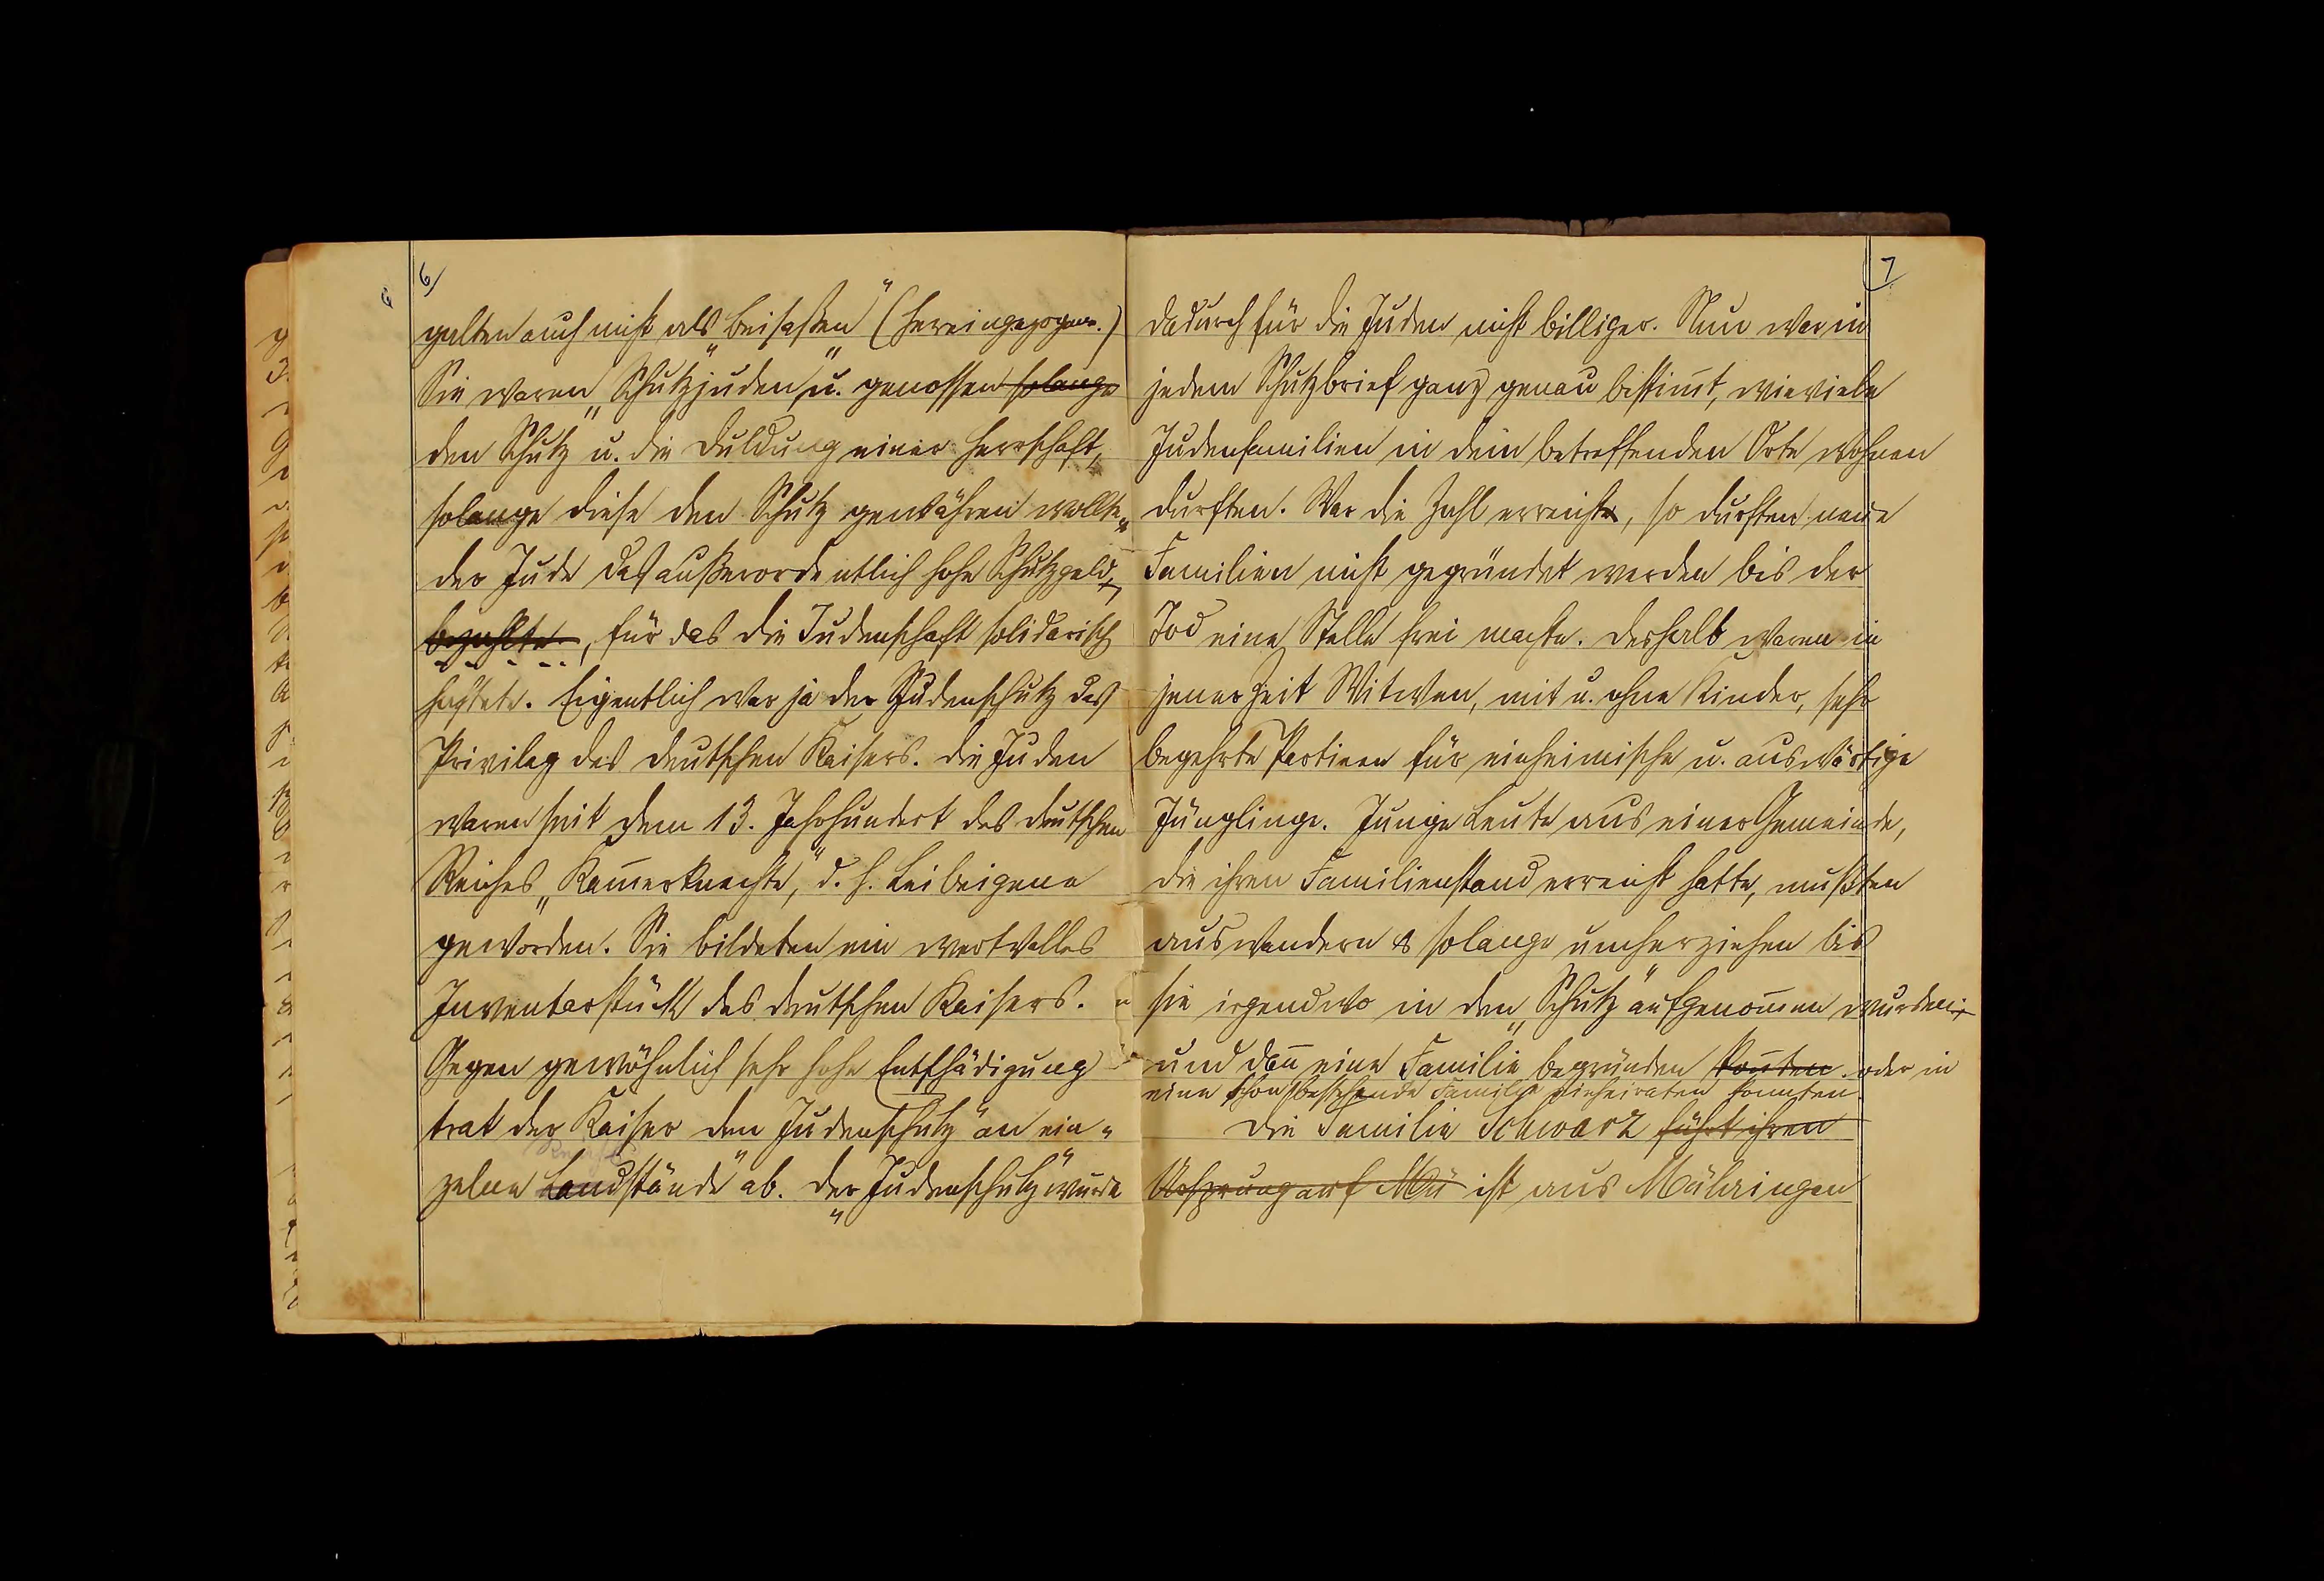 6
6)
galten auch nicht als „Beisaßen" (Hereingezogene.)
Sie waren „Schutzjuden" u. genossen solange
den Schutz u. die Duldung einer Herrschaft,
solange diese den Schutz gewähren wollte u.
der Jude das außerordentlich hohe Schutzgeld,
bezahlte, für das die Judenschaft solidarisch
haftete. Eigentlich war ja der Judenschutz das
Privileg des deutschen Kaisers. Die Juden
waren seit dem 13. Jahrhundert des deutschen
Reiches „Kam̄erknechte", d. h. Leibeigene
geworden. Sie bildeten ein wertvolles
Inventarstück des deutschen Kaisers.
Gegen gewöhnlich sehr hohe Entschädigung
trat der Kaiser den „Judenschutz" an ein-
Reichs
zelne Landstände ab. Der „Judenschutz" wurde
7
dadurch für die Juden nicht billiger. Nun war in
jedem Schutzbrief ganz genau bestim̄t, wieviele
Judenfamilien in dem betreffenden Orte wohnen
durften. War die Zahl erreicht, so durften neue
Familien nicht gegründet werden bis der
Tod eine Stelle frei machte. Deshalb waren in
jener Zeit Witwen, mit u. ohne Kinder, sehr
begehrte Partieen für einheimische u. auswärtige
Jünglinge. Junge Leute aus einer Gemeinde,
die ihren Familienstand erreicht hatte, mußten
auswandern & solange umherziehen bis
sie irgendwo in den „Schutz" aufgenom̄en wurden
und dan̄ eine Familie begründen kon̄ten oder in
eine schon bestehende Familie einheiraten konnten.
Die Familie Schwarz führt ihren
Ursprung auf Mü ist aus Mühringen